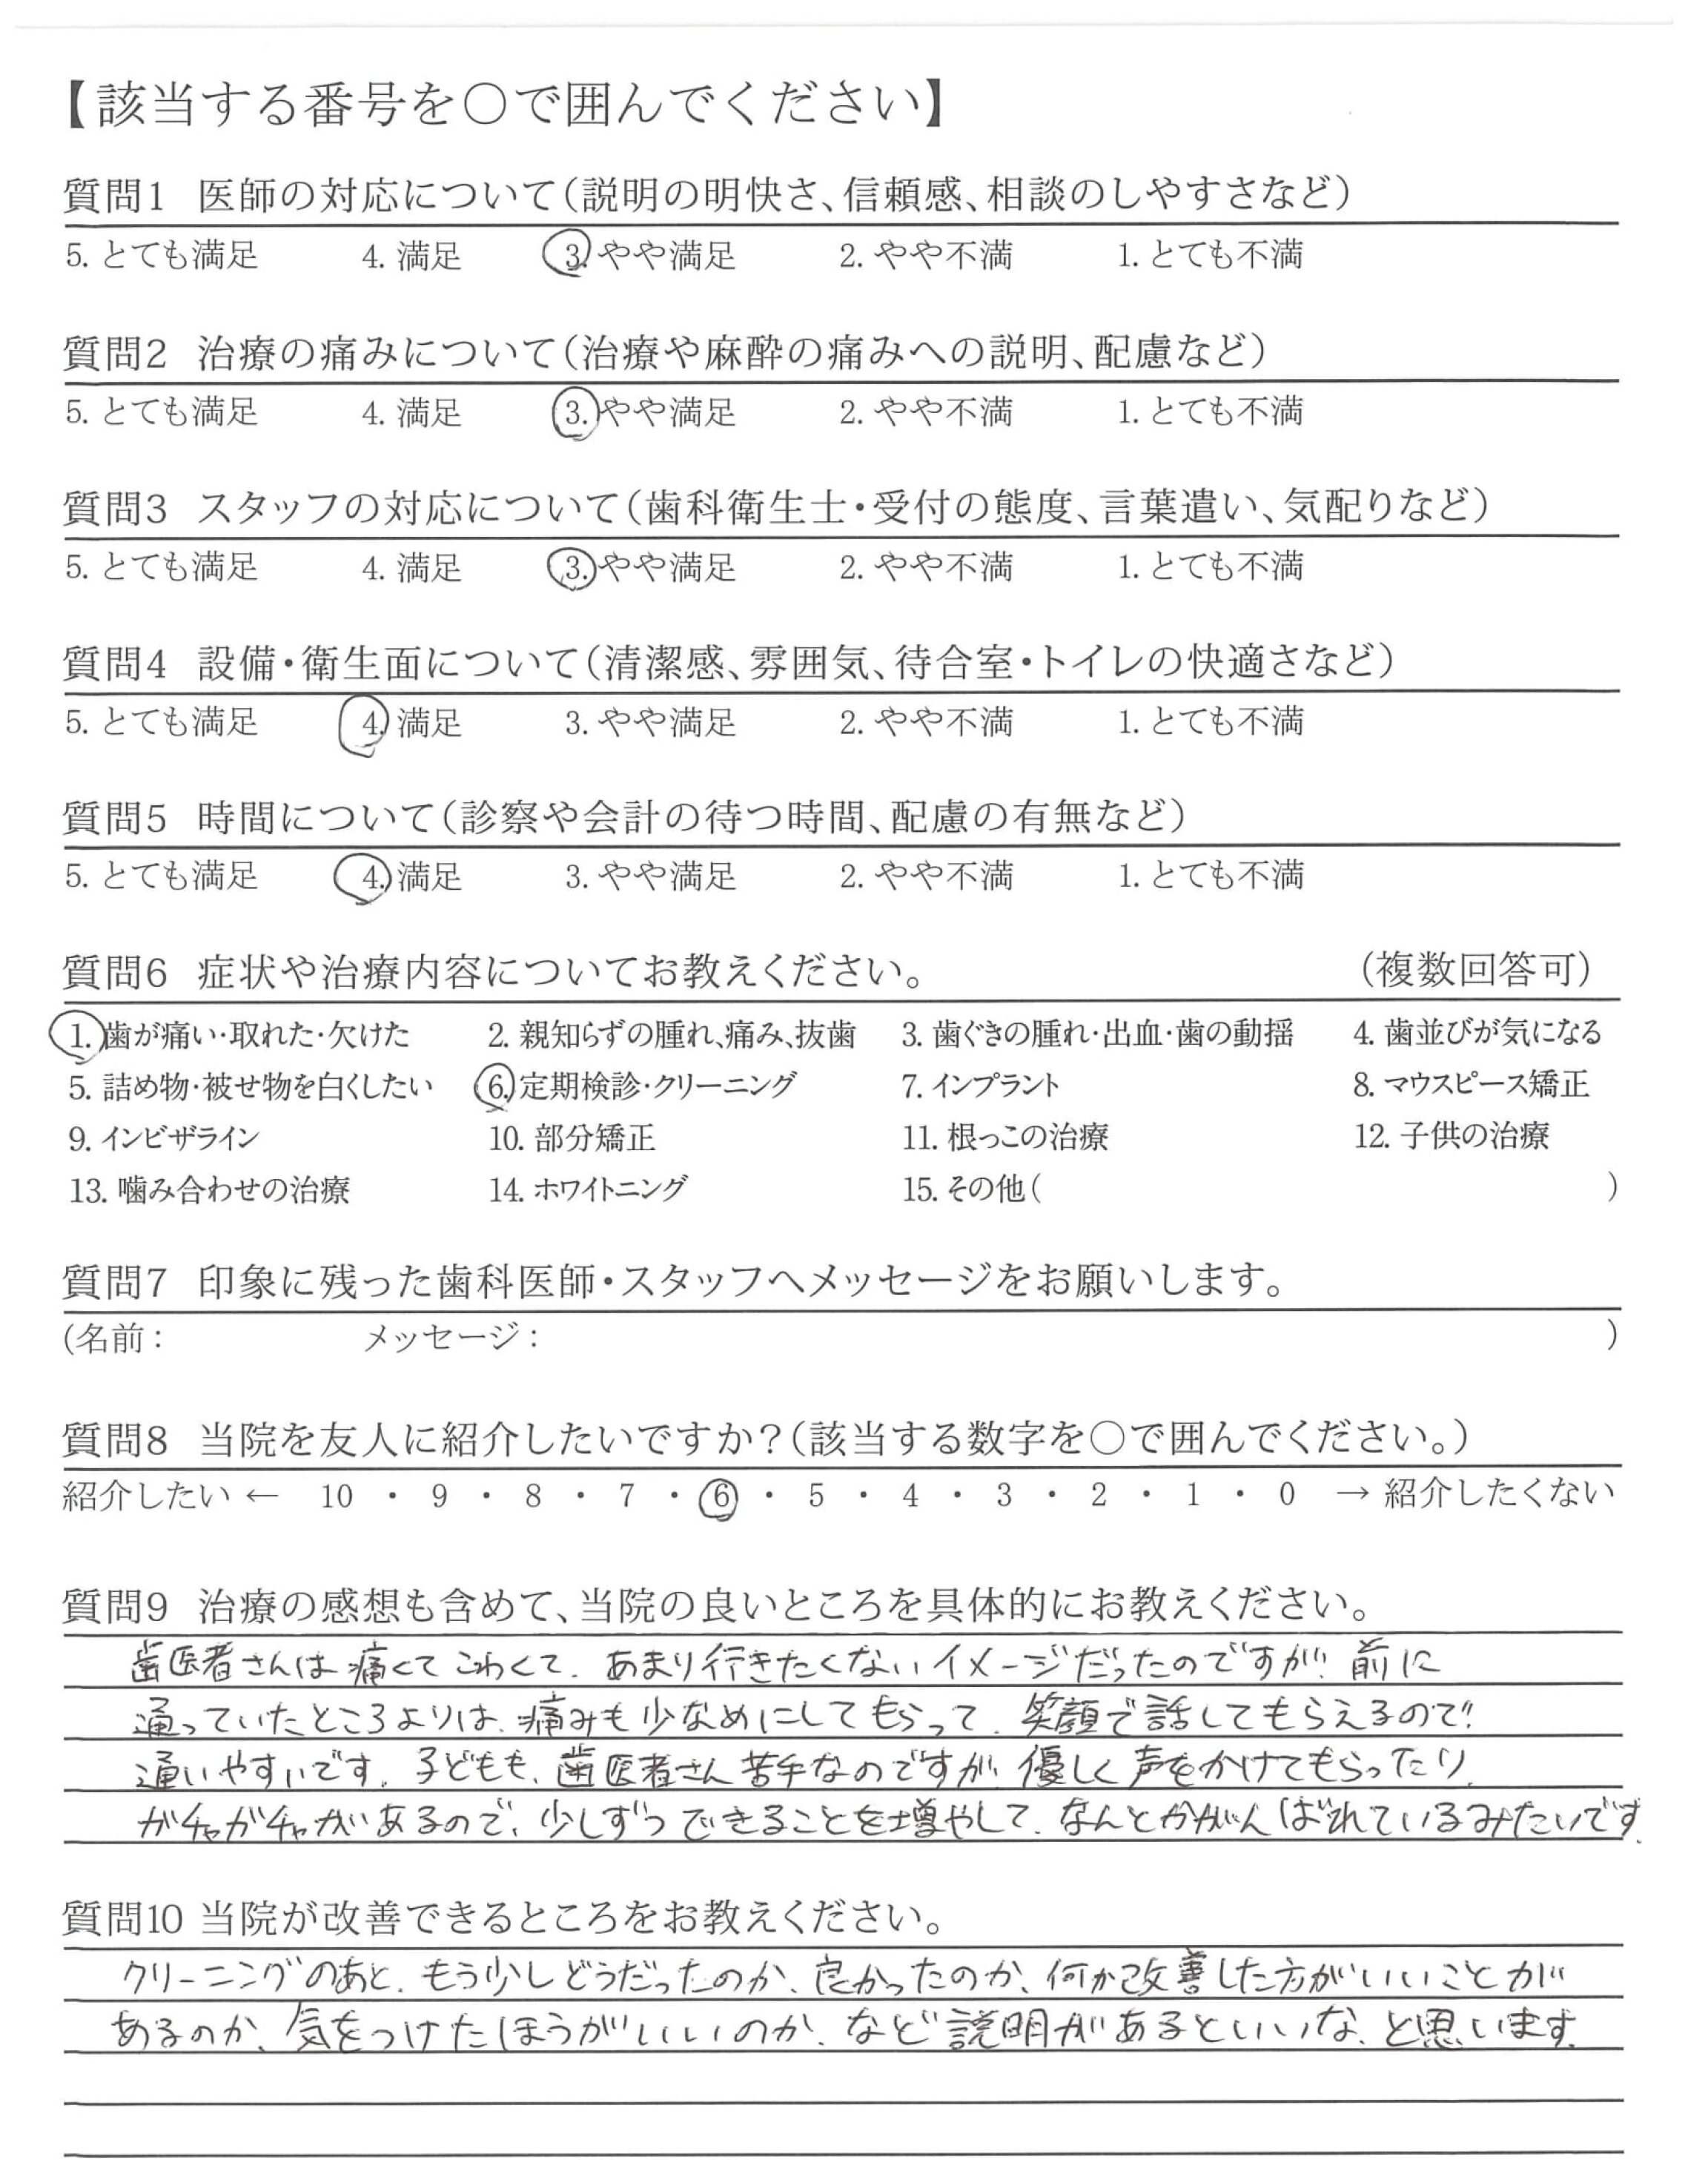 【該当する番号を○で囲んでください】
質問1 医師の対応について(説明の明快さ、信頼感、相談のしやすさなど)
5. とても満足 4. 満足 3. やや満足 2. やや不満 1. とても不満
質問2 治療の痛みについて(治療や麻酔の痛みへの説明、配慮など)
5. とても満足 4. 満足 3. やや満足 2. やや不満 1. とても不満
質問3 スタッフの対応について(歯科衛生士・受付の態度、言葉遣い、気配りなど)
5. とても満足 4. 満足 3. やや満足 2. やや不満 1. とても不満
質問4 設備・衛生面について(清潔感、雰囲気、待合室・トイレの快適さなど)
5. とても満足 4. 満足 3. やや満足 2. やや不満 1. とても不満
質問5 時間について(診察や会計の待つ時間、配慮の有無など)
5. とても満足 4. 満足 3. やや満足 2. やや不満 1. とても不満
質問6 症状や治療内容についてお教えください。 (複数回答可)
1. 歯が痛い・取れた・欠けた 2. 親知らずの腫れ、痛み、抜歯 3. 歯ぐきの腫れ・出血・歯の動揺 4. 歯並びが気になる
5. 詰め物・被せ物を白くしたい 6. 定期検診・クリーニング 7. インプラント 8. マウスピース矯正
9. インビザライン 10. 部分矯正 11. 根っこの治療 12. 子供の治療
13. 噛み合わせの治療 14. ホワイトニング 15. その他( )
質問7 印象に残った歯科医師・スタッフへメッセージをお願いします。
(名前: メッセージ: )
質問8 当院を友人に紹介したいですか?(該当する数字を○で囲んでください。)
紹介したい ← 10 ・ 9 ・ 8 ・ 7 ・ 6 ・ 5 ・ 4 ・ 3 ・ 2 ・ 1 ・ 0 → 紹介したくない
質問9 治療の感想も含めて、当院の良いところを具体的にお教えください。
歯医者さんは痛くてこわくて、あまり行きたくないイメージだったのですが、前に
通っていたところよりは、痛みも少なめにしてもらって、笑顔で話してもらえるので、
通いやすいです。子どもも、歯医者さん苦手なのですが、優しく声をかけてもらったり、
ガチャガチャがあるので、少しずつできることを増やして、なんとかがんばれているみたいです。
質問10 当院が改善できるところをお教えください。
クリーニングのあと、もう少しどうだったのか、良かったのか、何か改善した方がいいことが
あるのか、気をつけたほうがいいのか、など説明があるといいな、と思います。